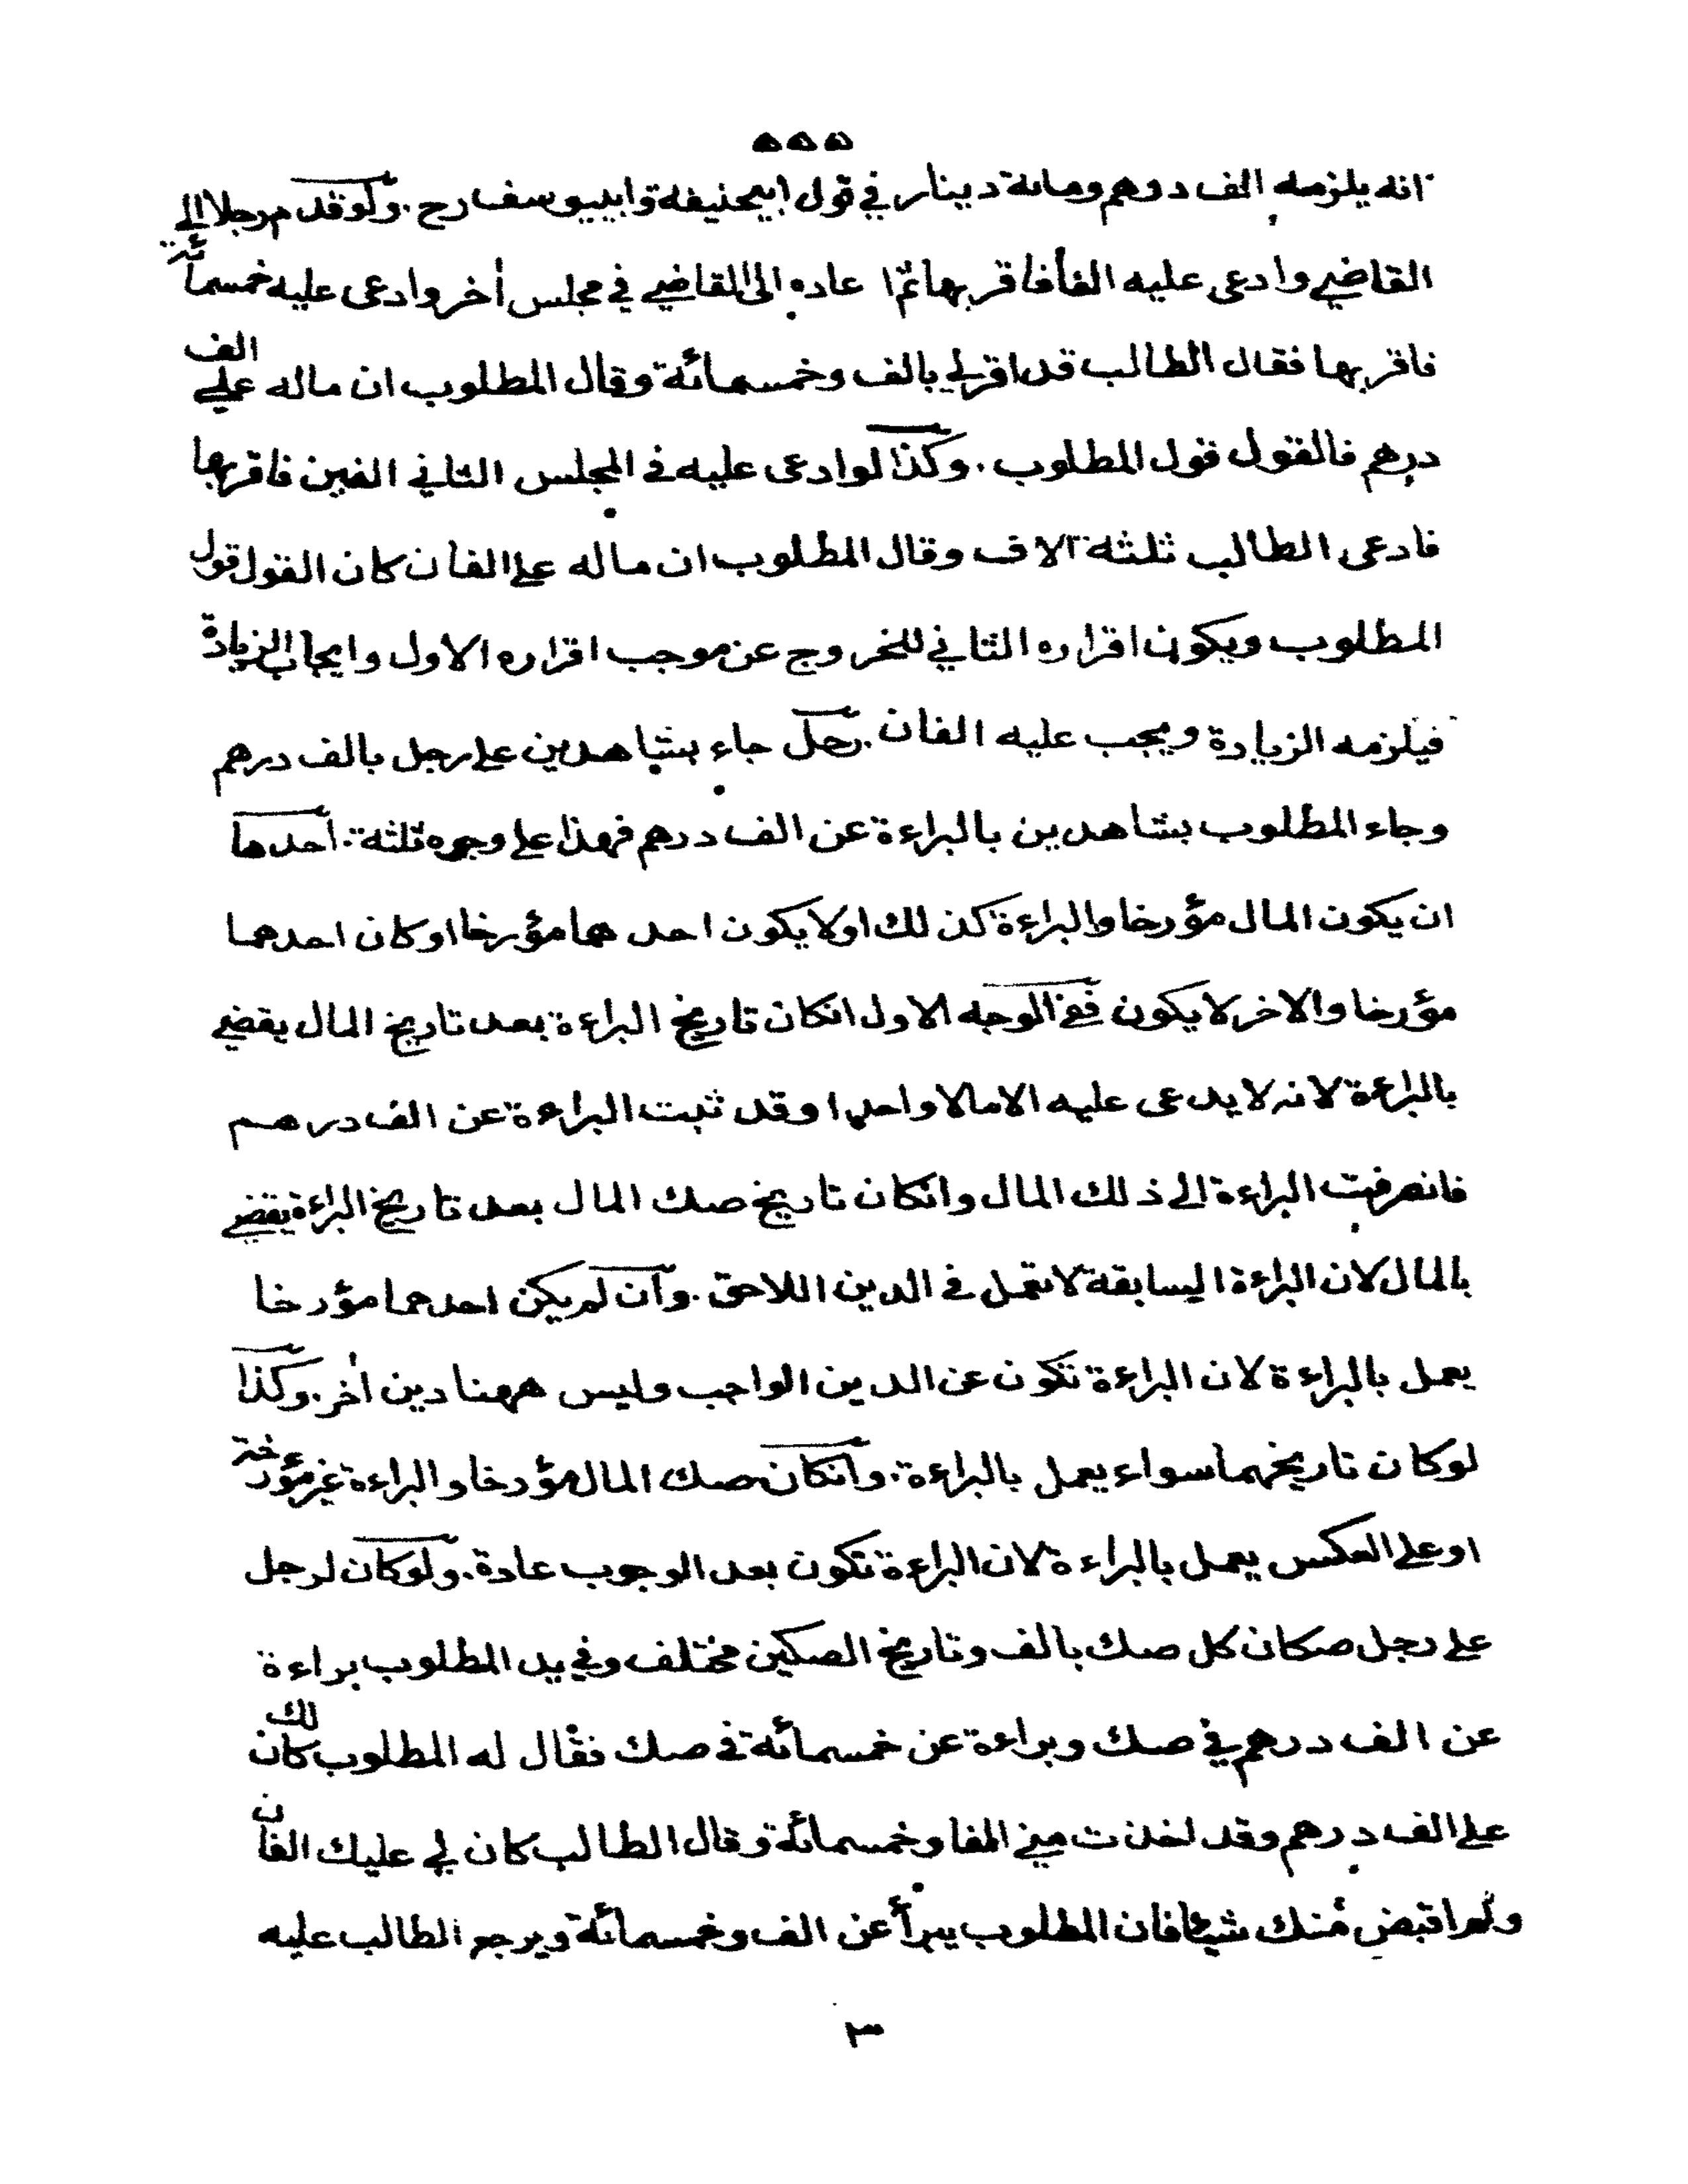 ٥٥٥
انه يلزمه الف درهم ومائة دينار في قول ابيحنيفة وابييوسف رح . ولو قدم رجلا الى
القاضي وادعى عليه الفا فاقر بها ثم اعاده الى القاضي في مجلس أخر وادعى عليه خمسمائة
فاقر بها فقال الطالب قد اقر لي بالف وخمسمائة وقال المطلوب ان ماله علي الف
درهم فالقول قول المطلوب . وكذا لو ادعى عليه في المجلس الثاني الفين فاقر بها
فادعى الطالب ثلثة آلاف وقال المطلوب ان ماله علي الفان كان القول قول
المطلوب ويكون اقراره الثاني للخروج عن موجب اقراره الاول وايجاب الزيادة
فيلزمه الزيادة ويجب عليه الفان . رجل جاء بشاهدين على رجل بالف درهم
وجاء المطلوب بشاهدين بالبراءة عن الف درهم فهذا على وجوه ثلثة . احدها
ان يكون المال مؤرخا والبراءة كذلك اولا يكون احدهما مؤرخا اوكان احدهما
مؤرخا والاخر لا يكون ففي الوجه الاول انكان تاريخ البراءة بعد تاريخ المال يقضي
بالبراءة لانه لا يدعى عليه الا مالا واحدا وقد ثبت البراءة عن الف درهم
فانصرفت البراءة الى ذلك المال وانكان تاريخ صك المال بعد تاريخ البراءة يقضي
بالمال لان البراءة السابقة لا تعمل في الدين اللاحق . وان لم يكن احدهما مؤرخا
يعمل بالبراءة لان البراءة تكون عن الدين الواجب وليس ههنا دين أخر . وكذا
لوكان تاريخهما سواء يعمل بالبراءة . وانكان صك المال مؤرخا والبراءة غير مؤرخة
او على العكس يعمل بالبراءة لان البراءة تكون بعد الوجوب عادة . ولوكان لرجل
على رجل صكان كل صك بالف وتاريخ الصكين مختلف وفي يد المطلوب براءة
عن الف درهم في صك وبراءة عن خمسمائة في صك فقال له المطلوب كان لك
علي الف درهم وقد اخذت مني الفا وخمسمائة وقال الطالب كان لي عليك الفان
ولم اقبض منك شيئا فان المطلوب يبرأ عن الف وخمسمائة ويرجع الطالب عليه
٣